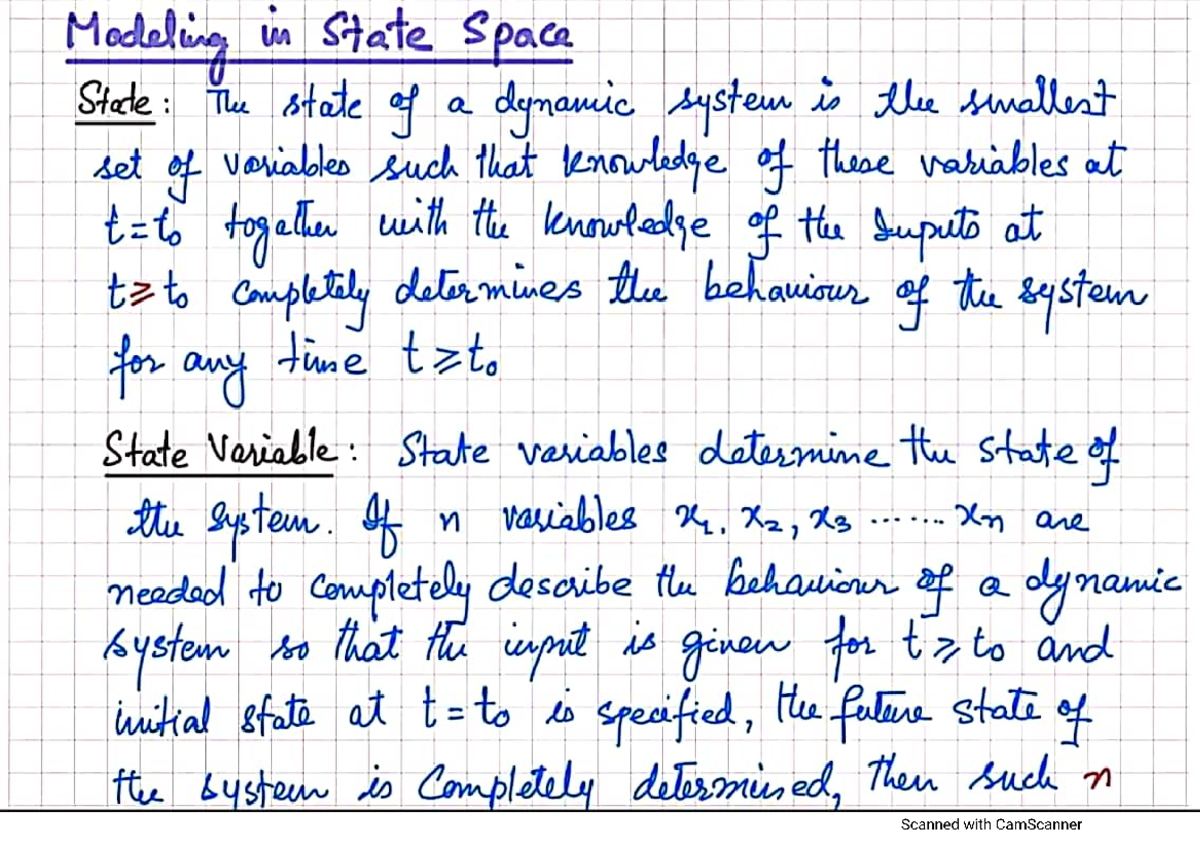 Modeling in State Space
State: The state of a dynamic system is the smallest
set of variables such that knowledge of these variables at
t=t₀ together with the knowledge of the Inputs at
t⩾t₀ completely determines the behaviour of the system
for any time t⩾t₀
State Variable: State variables determine the state of
the system. If n variables x₁, x₂, x₃ ....... xₙ are
needed to completely describe the behaviour of a dynamic
system so that the input is given for t⩾t₀ and
initial state at t=t₀ is specified, the future state of
the system is Completely determined, then such n
Scanned with CamScanner